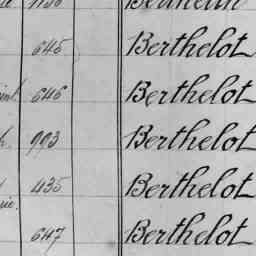 645 Berthelot
646 Berthelot
993 Berthelot
435 Berthelot
647 Berthelot